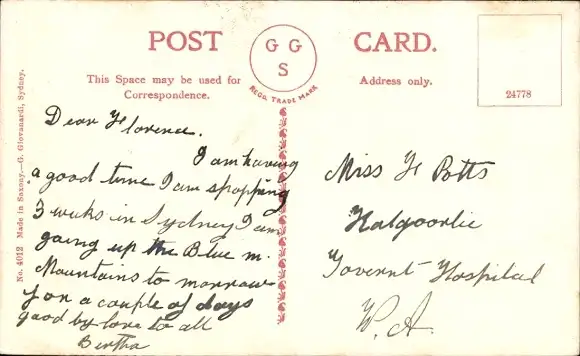 POST CARD.
G G
S
REGD. TRADE MARK
This Space may be used for
Correspondence.
Address only.
24778
No. 4012 Made in Saxony.—G. Giovanardi, Sydney.
Dear Florence.
I am having
a good time I am spopping
3 weeks in Sydney I am
going up the Blue m.
Mountains to morrow
for a couple of days
good by love to all
Bertha
Miss F Potts
Kalgoorlie
Governt Hospital
W. A.